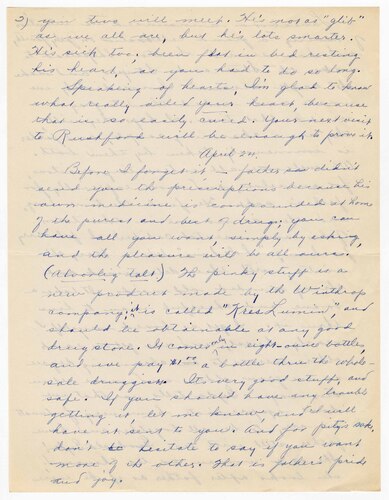 2) you two will meet. He's not as "glib"
as we all are, but he's lots smarter.
He's sick too; been flat in bed resting
his heart, as you had to do so long.
Speaking of hearts, I'm glad to know
what really ailed your heart, because
that is so easily cured. Your next visit
to Rushford will be enough to prove it.
April 24.
Before I forget it - father
didn't
send you the prescriptions because his
own medicine is compounded at home
of the purest and best of drugs; you can
have all you want, simply by asking,
and the pleasure will be all ours.
The pinky stuff is a
new product made by the Winthrop
company; it is called "Kres Lumin", and
should be obtainable at any good
drugstore. It comes only in eight-ounce bottles,
and we pay a bottle thru the whole-
sale druggist. It's very good stuff, and
safe. If you should have any trouble
getting it, let me know, and I will
have it sent to you. And for pity's sake,
don't hesitate to say if you want
more of the other. That is father's pride
and joy.